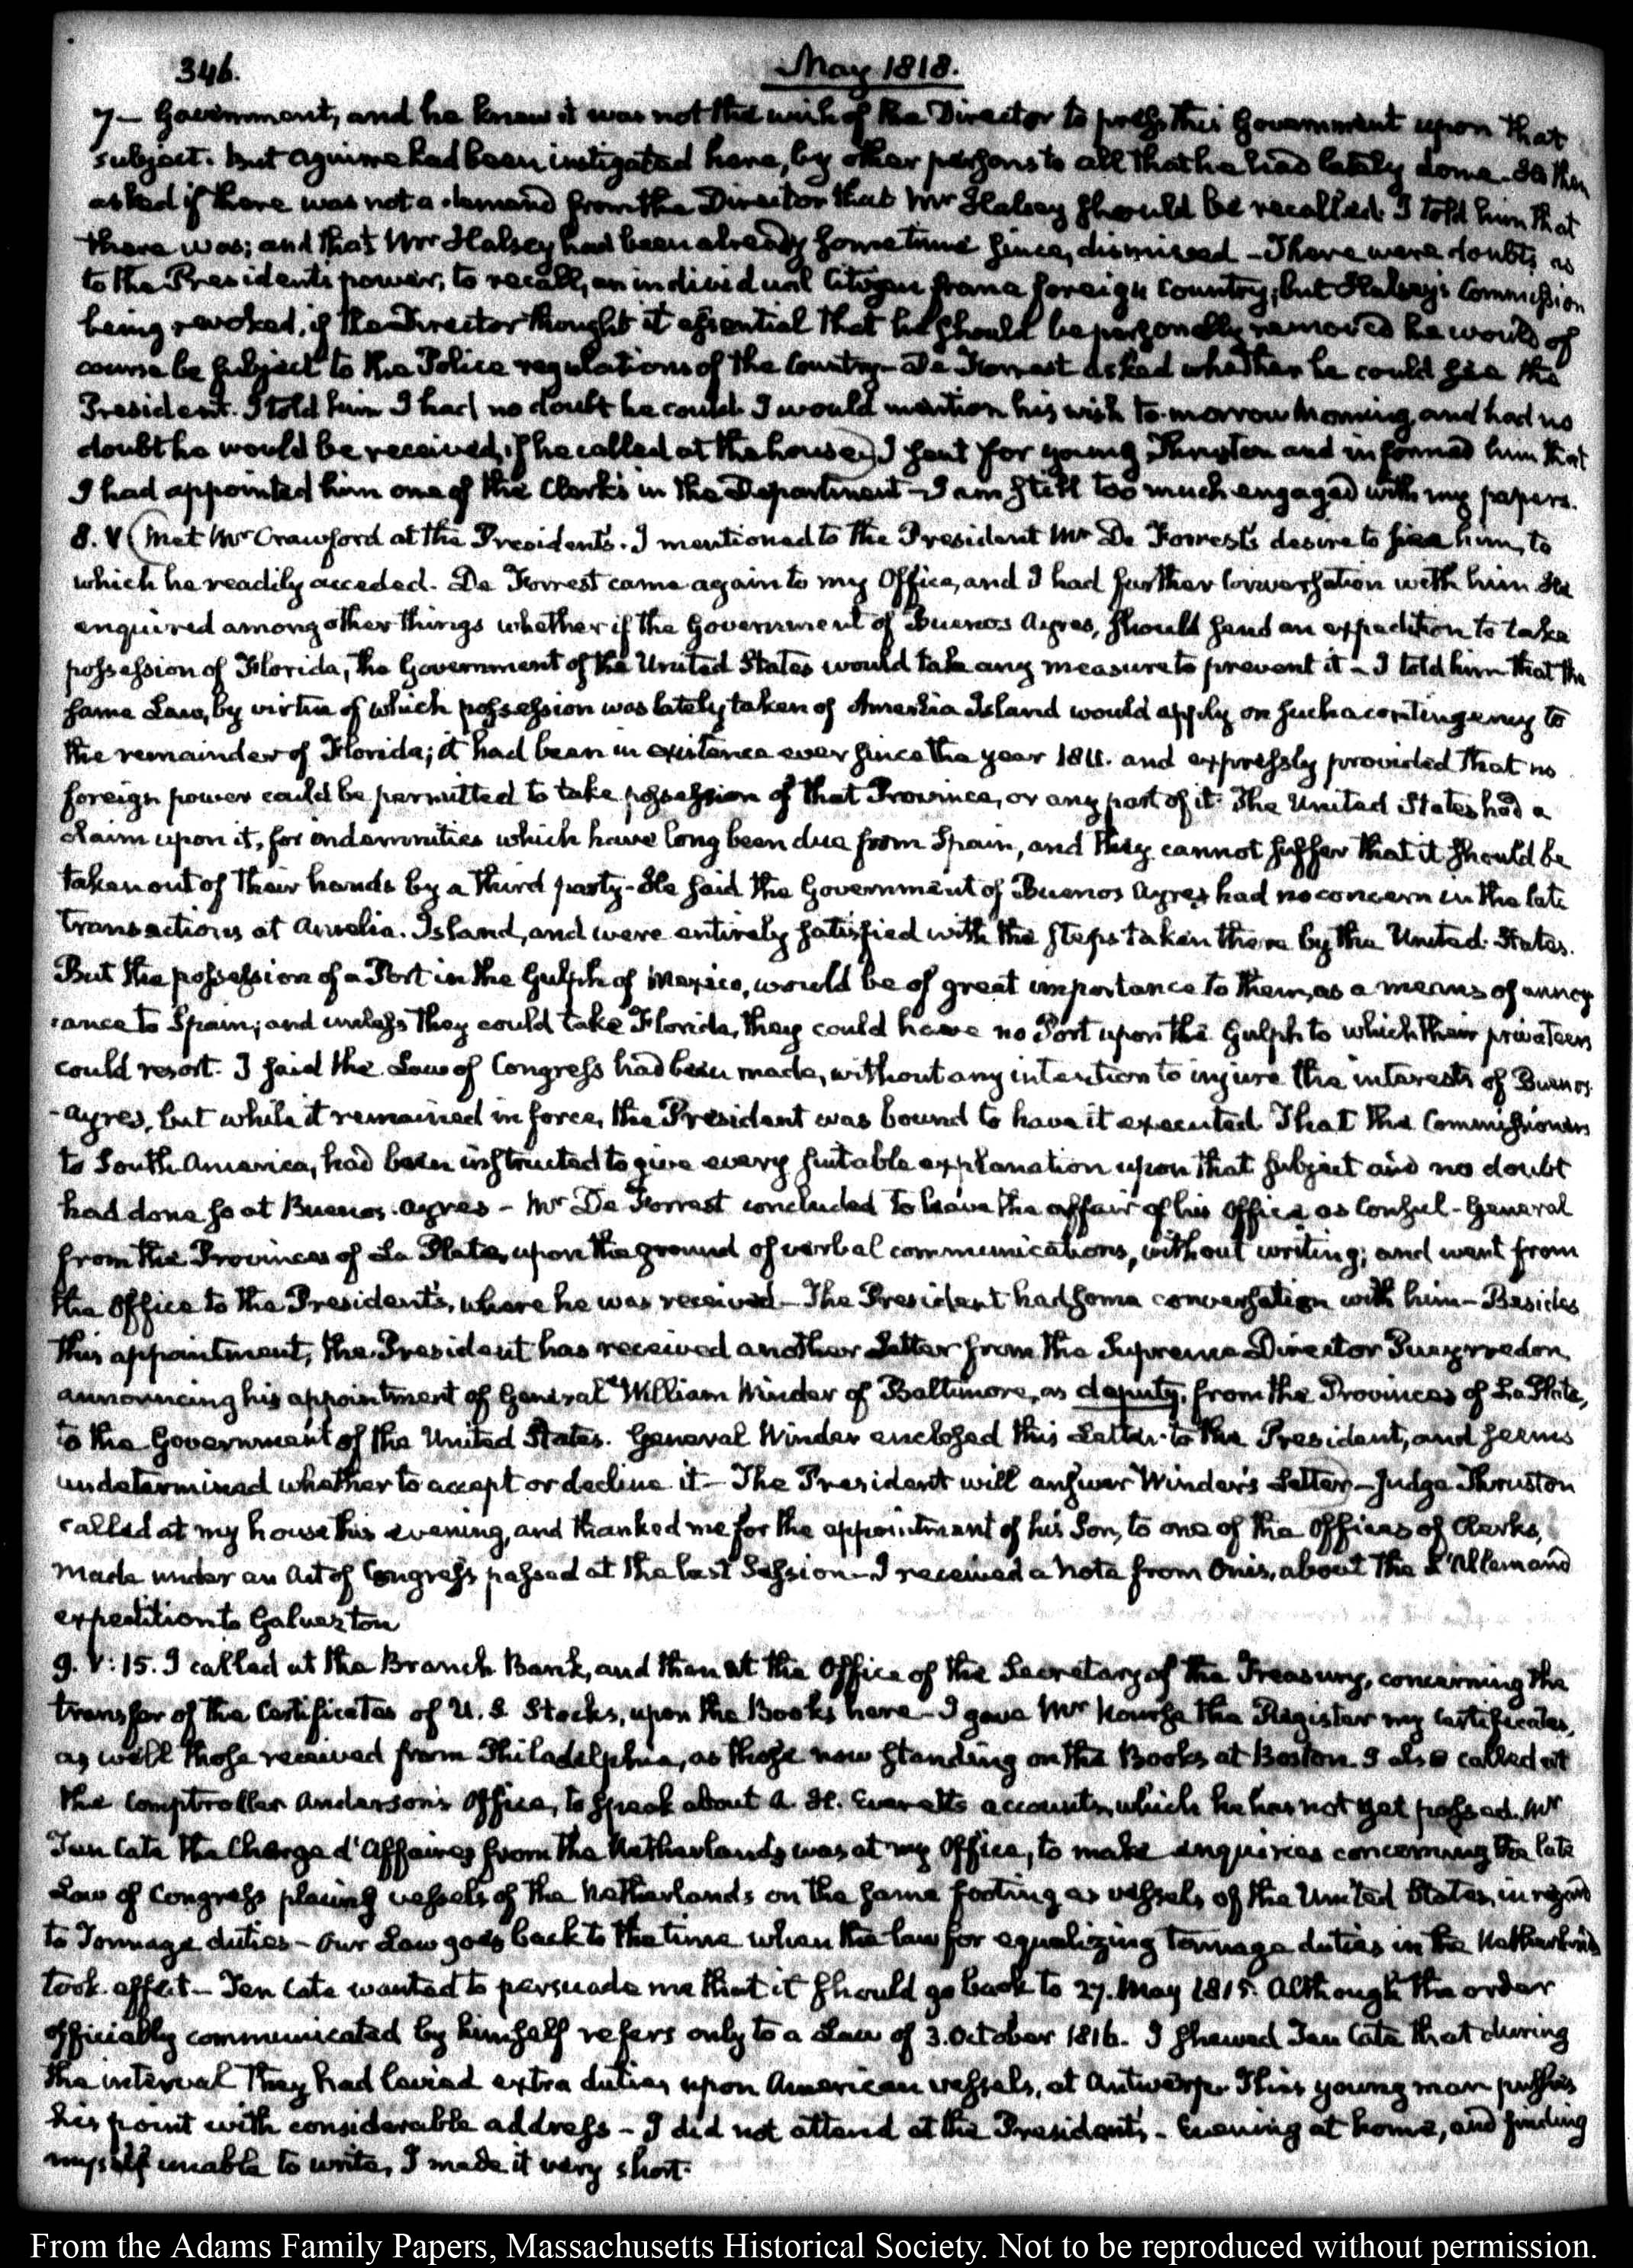 346.
May 1818.
7— Government, and he knew it was not the wish of the Director to press this Government upon that
subject. But Aguirre had been instigated here, by other persons to all that he had lately done. He then
asked if there was not a demand from the Director that Mr Halsey should be recalled. I told him that
there was; and that Mr Halsey had been already sometime since, dismissed — There were doubts as
to the Presidents power, to recall, an individual Citizen from a foreign Country; but Halsey's Commission
being revoked, if the Director thought it essential that he should be personally removed he would of
course be subject to the Police regulations of the Country — De Forrest asked whether he could see the
President. I told him I had no doubt he could. I would mention his wish to-morrow Morning, and had no
doubt he would be received, if he called at the house) I sent for young Thruston and informed him that
I had appointed him one of the Clerks in the Department — I am still too much engaged with my papers.
8. V (Met Mr Crawford at the Presidents. I mentioned to the President Mr De Forrest's desire to see him, to
which he readily acceded. De Forrest came again to my Office, and I had further conversation with him He
enquired among other things whether if the Government of Buenos Ayres, should send an expedition to take
possession of Florida, the Government of the United States would take any measure to prevent it — I told him that the
same Law, by virtue of which possession was lately taken of Amelia Island would apply on such a contingency to
the remainder of Florida; it had been in existence ever since the year 1811. and expressly provided that no
foreign power could be permitted to take possession of that Province, or any part of it. The United States had a
claim upon it, for indemnities which have long been due from Spain, and they cannot suffer that it should be
taken out of their hands by a third party — He said the Government of Buenos Ayres had no concern in the late
transactions at Amelia. Island, and were entirely satisfied with the steps taken there by the United States.
But the possession of a Port in the Gulph of Mexico, would be of great importance to them, as a means of annoy
-ance to Spain; and unless they could take Florida, they could have no Port upon the Gulph to which their privateers
could resort. I said the Law of Congress had been made, without any intention to injure the interests of Buenos
-Ayres, but while it remained in force, the President was bound to have it executed. That the Commissioners
to South America, had been instructed to give every suitable explanation upon that subject and no doubt
had done so at Buenos-Ayres — Mr De Forrest concluded to leave the affair of his Office as Consul-General
from the Provinces of La Plata, upon the ground of verbal communications, without writing; and went from
the Office to the President's, where he was received — The President had some conversation with him — Besides
this appointment, the President has received another Letter from the Supreme Director Pueyrredon,
announcing his appointment of General William Winder of Baltimore, as deputy, from the Provinces of La Plata,
to the Government of the United States. General Winder enclosed this Letter to the President, and seems
undetermined whether to accept or decline it — The President will answer Winder's Letter) — Judge Thruston
called at my house this evening, and thanked me for the appointment of his Son, to one of the Offices of Clerks,
made under an Act of Congress passed at the last Session — I received a Note from Onis, about the L'Allemand
expedition to Galveston
9. V:15. I called at the Branch Bank, and then at the Office of the Secretary of the Treasury, concerning the
transfer of the Certificates of U. S. Stocks, upon the Books here — I gave Mr Nourse the Register my Certificates,
as well those received from Philadelphia, as those now standing on the Books at Boston. I also called at
the Comptroller Anderson's Office, to speak about A. H. Everett's accounts, which he has not yet passed. Mr
Ten Cate the Chargé d'Affaires from the Netherlands was at my Office, to make enquiries concerning the late
Law of Congress placing vessels of the Netherlands on the same footing as vessels of the United States, in regard
to Tonnage duties — Our Law goes back to the time when the law for equalizing tonnage duties in the Netherlands
took effect — Ten Cate wanted to persuade me that it should go back to 27. May 1815. Although the order
officially communicated by himself refers only to a Law of 3. October 1816. I shewed Ten Cate that during
the interval they had levied extra duties upon American vessels, at Antwerp. This young man pushes
his point with considerable address — I did not attend at the President's — Evening at home, and finding
myself unable to write, I made it very short.
From the Adams Family Papers, Massachusetts Historical Society. Not to be reproduced without permission.